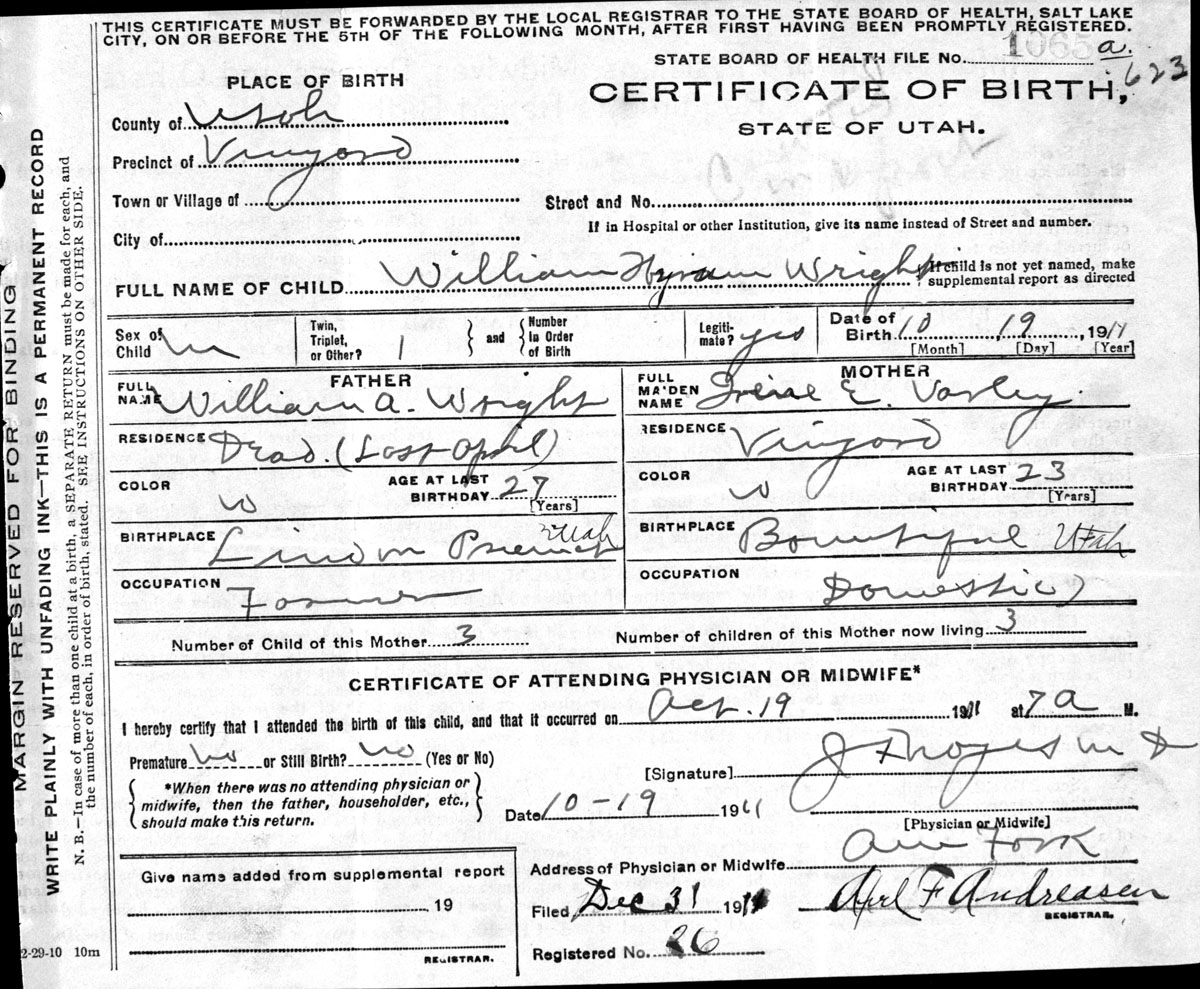 THIS CERTIFICATE MUST BE FORWARDED BY THE LOCAL REGISTRAR TO THE STATE BOARD OF HEALTH, SALT LAKE
CITY, ON OR BEFORE THE 5TH OF THE FOLLOWING MONTH, AFTER FIRST HAVING BEEN PROMPTLY REGISTERED.
1065 a.
STATE BOARD OF HEALTH FILE No.
623
PLACE OF BIRTH
CERTIFICATE OF BIRTH,
STATE OF UTAH.
County of Utah
Precinct of Vinyard
Town or Village of
Street and No.
If in Hospital or other Institution, give its name instead of Street and number.
City of
FULL NAME OF CHILD William Hyrum Wright
If child is not yet named, make
supplemental report as directed
Sex of Child M
Twin, Triplet, or Other? 1
and
Number in Order of Birth
Legiti-mate? yes
Date of Birth 10 19, 1911
[Month] [Day] [Year]
FATHER
FULL NAME William A. Wright
RESIDENCE Dead. (Last April)
COLOR W
AGE AT LAST BIRTHDAY 27
[Years]
BIRTHPLACE Lindon Precinct Utah
OCCUPATION Farmer
MOTHER
FULL MAIDEN NAME E. Varley
RESIDENCE Vinyard
COLOR W
AGE AT LAST BIRTHDAY 23
[Years]
BIRTHPLACE Bountiful Utah
OCCUPATION Domestic
Number of Child of this Mother 3
Number of children of this Mother now living 3
CERTIFICATE OF ATTENDING PHYSICIAN OR MIDWIFE*
I hereby certify that I attended the birth of this child, and that it occurred on Oct. 19 1911 at 7 a M.
Premature No or Still Birth? No (Yes or No)
*When there was no attending physician or
midwife, then the father, householder, etc.,
should make this return.
[Signature] J F Noyes M D
[Physician or Midwife]
Date 10-19 1911
Address of Physician or Midwife Am Fork
Give name added from supplemental report
19
REGISTRAR.
Filed Dec 31 1911
Axel F Andreasen
REGISTRAR.
Registered No. 26
2-29-10 10m
MARGIN RESERVED FOR BINDING
WRITE PLAINLY WITH UNFADING INK—THIS IS A PERMANENT RECORD
N. B.—In case of more than one child at a birth, a SEPARATE RETURN must be made for each, and
the number of each, in order of birth, stated. SEE INSTRUCTIONS ON OTHER SIDE.